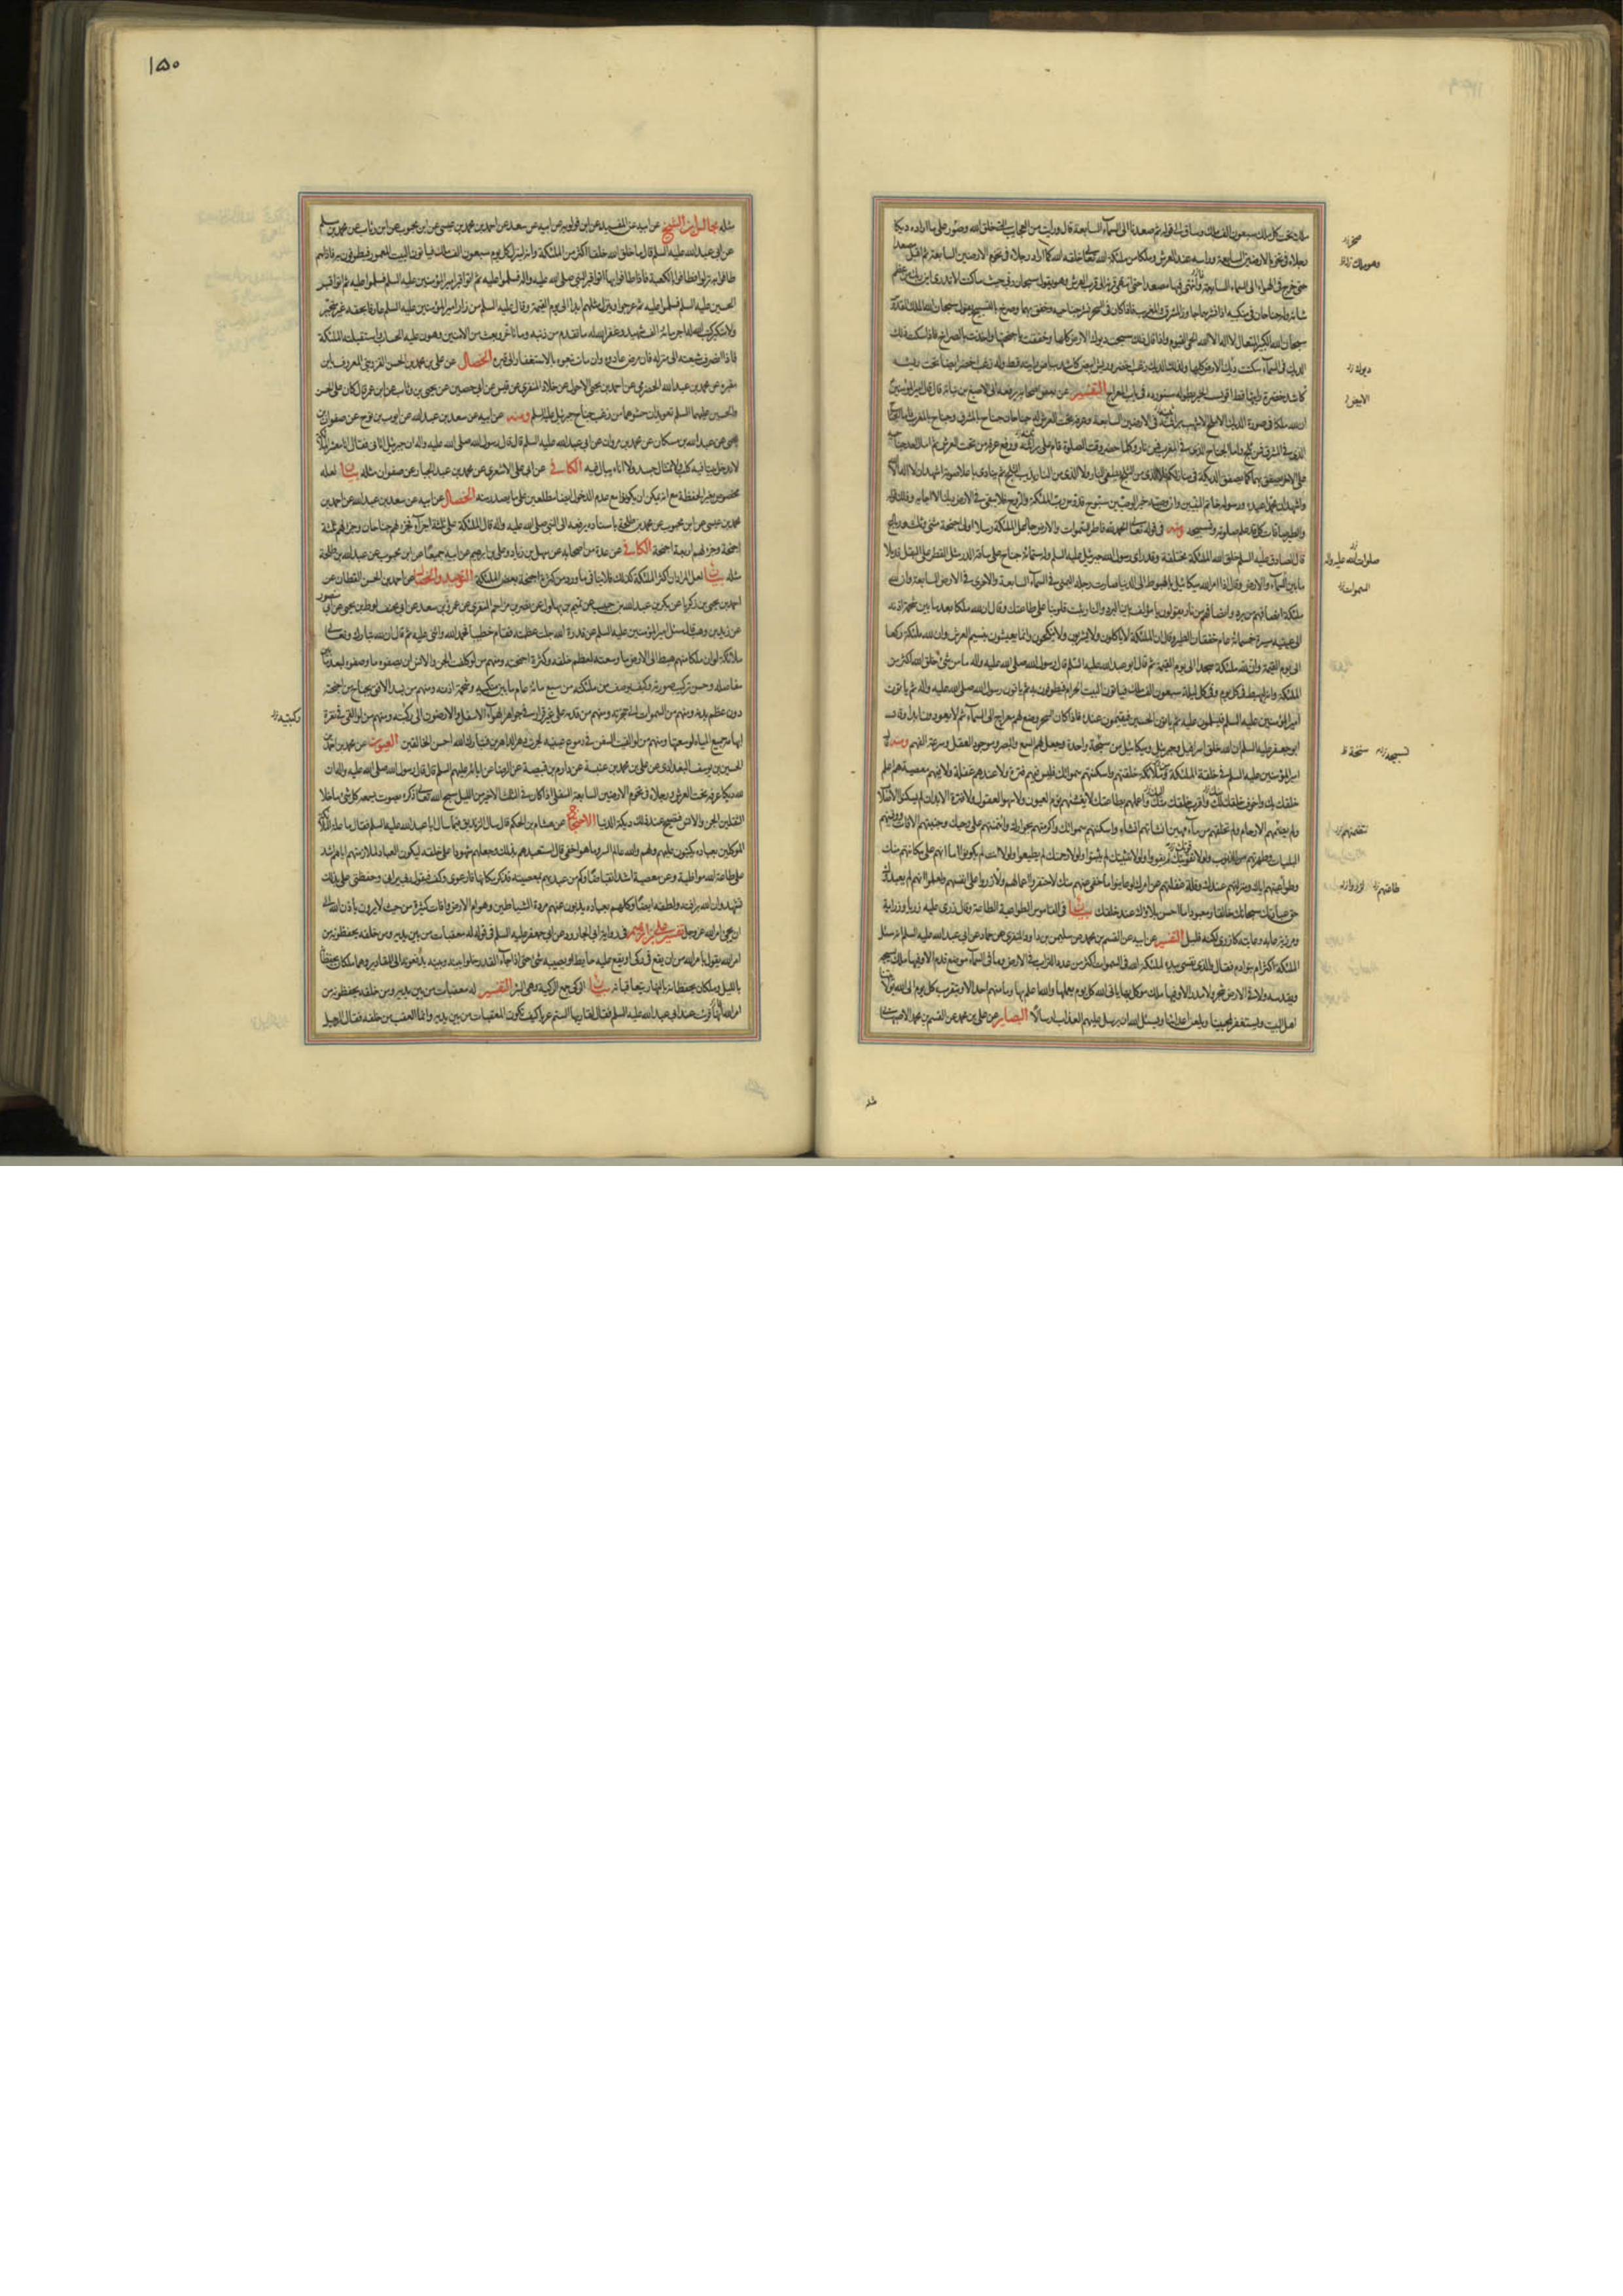 ملك تحت كل ملك سبعون الف ملك وساق الى قوله ثم صعدنا الى السمآء السابعة قال ورايت من العجايب التى خلق الله وصور على ما اراده ديكا
رجلاه فى تخوم الارضين السابعة وراسه عند العرش وملكا من ملئكة الله تعالى خلقه الله كما اراد رجلاه فى تخوم الارضين السابعة ثم اقبل مصعدا
حتى خرج فى الهواء الى السماء السابعة وانتهى فيها مصعدا حتى انتهى قرنه الى قرب العرش وهو يقول سبحان ربى حيث ما كنت لا تدرى اين ربك من عظم
شانه وله جناحان فى منكبيه اذا نشرهما جاوزا المشرق والمغرب فاذا كان فى السحر نشر جناحيه وخفق بهما وصرخ بالتسبيح يقول سبحان الله الملك القدوس
سبحان الله الكبير المتعال لا اله الا الله الحى القيوم واذا قال ذلك سبحت ديوك الارض كلها وخفقت باجنحتها واخذت بالصراخ فاذا سكت ذلك
الديك فى السمآء سكت ديوك الارض كلها ولذلك الديك زغب اخضر وريش ابيض كاشد بياض رايته قط وله زغب اخضر ايضا تحت ريشه
كاشد خضرة رايتها قط اقول الخبر بطوله سنورده فى باب المعراج التفسير عن بعض اصحابه رفعه الى الاصبغ بن نباتة قال قال امير المؤمنين
ان لله ملكا فى صورة الديك الاملح الاشهب براثنه فى الارضين السابعة وعرفه تحت العرش له جناحان جناح بالمشرق وجناح بالمغرب فاما الجناح
الذى فى المشرق فمن ثلج واما الجناح الذى فى المغرب فمن نار وكلما حضر وقت الصلوة قام على براثنه ورفع عرفه من تحت العرش ثم امال احد جناحيه
على الاخر يصفق بهما كما يصفق الديكة فى منازلكم فلا الذى من الثلج يطفى النار ولا الذى من النار يذيب الثلج ثم ينادى باعلا صوته اشهد ان لا اله الا الله
واشهد ان محمدا عبده ورسوله خاتم النبيين وان وصيه خير الوصيين سبوح قدوس رب الملئكة والروح فلا يبقى فى الارض ديك الا اجابه وذلك قوله
والطير صافات كل قد علم صلوته وتسبيحه ومنه فى قوله تعالى الحمد لله فاطر السموات والارض جاعل الملئكة رسلا اولى اجنحة مثنى وثلث ورباع
قال الصادق عليه السلم خلق الله الملئكة مختلفة وقد راى رسول الله جبرئيل عليه السلم وله ستمائة جناح على ساقه الدر مثل القطر على البقل قد ملا
ما بين السمآء والارض وقال اذا امر الله ميكائيل بالهبوط الى الدنيا صارت رجله اليمنى فى السمآء السابعة والاخرى فى الارض السابعة وان لله
ملئكة انصافهم من برد وانصافهم من نار يقولون يا مؤلف بين البرد والنار ثبت قلوبنا على طاعتك وقال ان لله ملكا بعد ما بين شحمة اذنه
الى عينيه مسيرة خمسمائة عام خفقان الطير وقال ان الملئكة لا ياكلون ولا يشربون ولا ينكحون وانما يعيشون بنسيم العرش وان لله ملئكة ركعا
الى يوم القيمة وان لله ملئكة سجدا الى يوم القيمة ثم قال ابو عبد الله عليه السلم قال رسول الله صلى الله عليه واله ما من شىء خلق الله اكثر من
الملئكة وانه ليهبط فى كل يوم وفى كل ليلة سبعون الف ملك فياتون البيت الحرام فيطوفون به ثم ياتون رسول الله صلى الله عليه واله ثم ياتون
امير المؤمنين عليه السلم فيسلمون عليه ثم ياتون الحسين فيقيمون عنده فاذا كان السحر وضع لهم معراج الى السمآء ثم لا يعودون ابدا وقال
ابو جعفر عليه السلم ان الله خلق اسرافيل وجبرئيل وميكائيل من سبحة واحدة وجعل لهم السمع والبصر وجودة العقل وسرعة الفهم ومنه قال
امير المؤمنين عليه السلم فى خلقة الملئكة وملائكة خلقتهم واسكنتهم سمواتك فليس فيهم فترة ولا عندهم غفلة ولا فيهم معصية هم اعلم
خلقك بك واخوف خلقك لك واقرب خلقك منك واعملهم بطاعتك لا يغشيهم نوم العيون ولا سهو العقول ولا فترة الابدان لم يسكنوا الاصلاب
ولم يضمهم الارحام ولم تخلقهم من ماء مهين انشاتهم انشاء واسكنتهم سمواتك واكرمتهم بجوارك وائتمنتهم على وحيك وجنبتهم الافات ووقيتهم
البليات وطهرتهم من الذنوب ولولا تقويتك لم يقووا ولولا تثبيتك لم يثبتوا ولولا رحمتك لم يطيعوا ولولا انت لم يكونوا اما انهم على مكانتهم منك
وطواعيتهم اياك ومنزلتهم عندك وقلة غفلتهم عن امرك لو عاينوا ما خفى عنهم منك لاحتقروا اعمالهم ولازروا على انفسهم ولعلموا انهم لم يعبدوك
حق عبادتك سبحانك خالقا ومعبودا ما احسن بلاؤك عند خلقك بيان فى القاموس الطواعية الطاعة وقال زرى عليه زريا وزراية
ومزرية عابه وعاتبه كازرى لكنه قليل التفسير عن ابيه عن القسم بن محمد عن سليمن بن داود المنقرى عن حماد عن ابى عبد الله عليه السلم انه سئل
الملئكة اكثر ام بنو ادم فقال والذى نفسى بيده لملئكة الله فى السموات اكثر من عدد التراب فى الارض وما فى السمآء موضع قدم الا وفيها ملك يسبحه
ويقدسه ولا فى الارض شجر ولا مدر الا وفيها ملك موكل بها ياتى الله كل يوم بعملها والله اعلم بها وما منهم احد الا ويتقرب كل يوم الى الله بولايتنا
اهل البيت ويستغفر لمحبينا ويلعن اعدائنا ويسئل الله ان يرسل عليهم العذاب ارسالا البصاير عن على بن محمد عن القسم بن محمد الاصبهانى
مثله
١٥٠
مثله مجالس ابن الشيخ عن ابيه عن المفيد عن ابن قولويه عن ابيه عن سعد عن احمد بن محمد بن عيسى عن ابن محبوب عن ابن رئاب عن محمد بن مسلم
عن ابى عبد الله عليه السلم قال ما خلق الله خلقا اكثر من الملئكة وانه لينزل كل يوم سبعون الف ملك فياتون البيت المعمور فيطوفون به فاذا هم
طافوا به نزلوا فطافوا بالكعبة فاذا طافوا بها اتوا قبر النبى صلى الله عليه واله فسلموا عليه ثم اتوا قبر امير المؤمنين عليه السلم فسلموا عليه ثم اتوا قبر
الحسين عليه السلم فسلموا عليه ثم عرجوا وينزل مثلهم ابدا الى يوم القيمة وقال عليه السلم من زار امير المؤمنين عليه السلم عارفا بحقه غير متجبر
ولا متكبر كتب الله له اجر مائة الف شهيد وغفر الله له ما تقدم من ذنبه وما تاخر وبعث من الامنين وهون عليه الحساب واستقبلته الملئكة
فاذا انصرف شيعته الى منزله فان مرض عادوه وان مات تبعوه بالاستغفار الى قبره الخصال عن على بن محمد بن الحسن القزوينى المعروف بابن
مقبره عن محمد بن عبد الله الحضرمى عن احمد بن يحيى الاحول عن خلاد المنقرى عن قيس عن ابى حصين عن يحيى بن وثاب عن ابن عمر قال كان على الحسن
والحسين عليهما السلم تعويذان حشوهما من زغب جناح جبرئيل عليه السلم ومنه عن ابيه عن سعد بن عبد الله عن ايوب بن نوح عن صفوان بن
يحيى عن عبد الله بن مسكان عن محمد بن مروان عن ابى عبد الله عليه السلم قال قال رسول الله صلى الله عليه واله ان جبرئيل اتانى فقال انا معشر الملائكة
لا ندخل بيتا فيه كلب ولا تمثال جسد ولا اناء يبال فيه الكافى عن ابى على الاشعرى عن محمد بن عبد الجبار عن صفوان مثله بيان لعله
مخصوص بغير الحفظة مع انه يمكن ان يكونوا مع عدم الدخول ايضا مطلعين على ما يصدر منه الخصال عن ابيه عن سعد بن عبد الله عن احمد بن
محمد بن عيسى عن ابن محبوب عن محمد بن طلحة باسناده يرفعه الى النبى صلى الله عليه واله قال الملئكة على ثلثة اجزآء فجزء لهم جناحان وجزء لهم ثلثة
اجنحة وجزء لهم اربعة اجنحة الكافى عن عدة من اصحابه عن سهل بن زياد وعلى بن ابرهيم عن ابيه جميعا عن ابن محبوب عن عبد الله بن طلحة
مثله بيان لعل المراد ان اكثر الملئكة كذلك فلا ينافى ما ورد من كثرة اجنحة بعض الملئكة التوحيد والخصال عن احمد بن الحسن القطان عن
احمد بن يحيى بن زكريا عن بكر بن عبد الله بن حبيب عن تميم بن بهلول عن نصر بن مزاحم المنقرى عن عمر بن سعد عن ابى مخنف لوط بن يحيى عن ابى منصور
عن زيد بن وهب قال سئل امير المؤمنين عليه السلم عن قدرة الله جلت عظمته فقام خطيبا فحمد الله واثنى عليه ثم قال ان لله تبارك وتعالى
ملائكة لو ان ملكا منهم هبط الى الارض ما وسعته لعظم خلقه وكثرة اجنحته ومنهم من لو كلفت الجن والانس ان يصفوه ما وصفوه لبعد ما بين
مفاصله وحسن تركيب صورته وكيف يوصف من ملئكته من سبع مائة عام ما بين منكبيه وشحمة اذنه ومنهم من يسد الافق بجناح من اجنحته
دون عظم بدنه ومنهم من السموات الى حجزته ومنهم من قدمه على غير قرار فى جو الهوآء الاسفل والارضون الى ركبته ومنهم من لو القى فى نقرة
ابهامه جميع المياه لوسعتها ومنهم من لو القيت السفن فى دموع عينيه لجرت دهر الداهرين فتبارك الله احسن الخالقين العيون عن محمد بن احمد بن
الحسين بن يوسف البغدادى عن على بن محمد بن عنبسة عن دارم بن قبيصة عن الرضا عن ابائه عليهم السلم قال قال رسول الله صلى الله عليه واله ان
لله ديكا عرفه تحت العرش ورجلاه فى تخوم الارضين السابعة السفلى اذا كان فى الثلث الاخير من الليل سبح الله تعالى ذكره بصوت يسمعه كل شىء ما خلا
الثقلين الجن والانس فيصيح عند ذلك ديكة الدنيا الاحتجاج عن هشام بن الحكم قال سال الزنديق فيما سال ابا عبد الله عليه السلم فقال ما علة الملائكة
الموكلين بعباده يكتبون عليهم ولهم والله عالم السر وما هو اخفى قال استعبدهم بذلك وجعلهم شهودا على خلقه ليكون العباد لملازمتهم اياهم اشد
على طاعة الله مواظبة وعن معصيته اشد انقباضا وكم من عبد يهم بمعصيته فذكر مكانهما فارعوى وكف فيقول ربى يرانى وحفظتى على بذلك
تشهد وان الله برافته ولطفه ايضا وكلهم بعباده يذبون عنهم مردة الشياطين وهوام الارض وافات كثيرة من حيث لا يرون باذن الله الى
ان يجىء امر الله عز وجل تفسير على بن ابرهيم فى رواية ابى الجارود عن ابى جعفر عليه السلم فى قوله له معقبات من بين يديه ومن خلفه يحفظونه من
امر الله يقول بامر الله من ان يقع فى ركى او يقع عليه حايط او يصيبه شىء حتى اذا جآء القدر خلوا بينه وبينه يدفعونه الى المقادير وهما ملكان يحفظانه
بالليل وملكان يحفظانه بالنهار يتعاقبانه بيان الركى جمع الركية وهى البئر التفسير له معقبات من بين يديه ومن خلفه يحفظونه من
امر الله انها قرئت عند ابى عبد الله عليه السلم فقال لقاريها الستم عربا كيف تكون المعقبات من بين يديه وانما المعقب من خلفه فقال الرجل